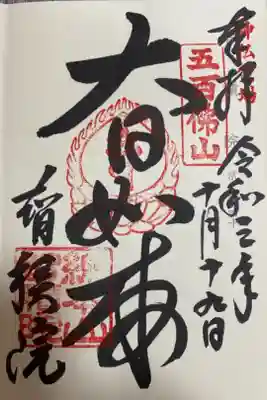 奉拝 令和三年十月十九日
五百佛山
大日如来
智積院